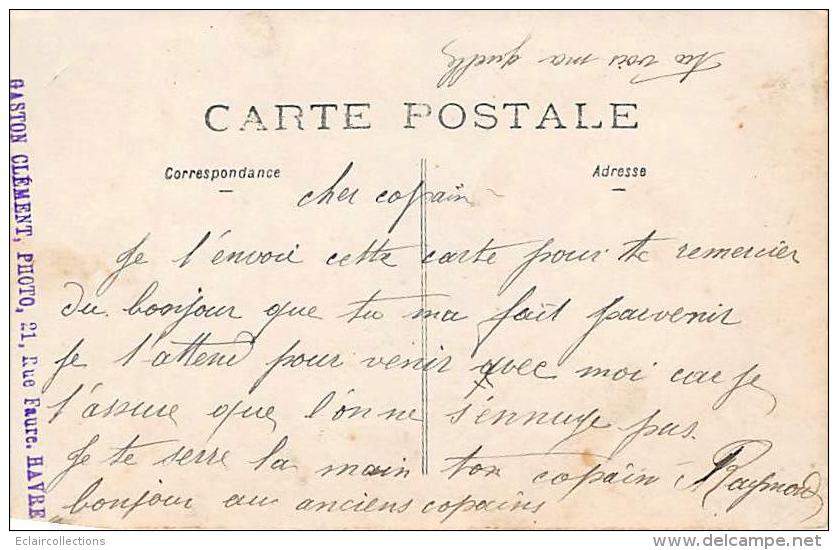 tu vois ma
CARTE POSTALE
Correspondance
Adresse
cher copain
Je t'envoie cette carte pour te remercier
du bonjour que tu ma fait parvenir
Je t'attend pour venir avec moi car je
t'assure que l'ônne s'ennuye pas.
Je te serre la main ton copain Raymond
bonjour au anciens copains
GASTON CLÉMENT, PHOTO, 21, Rue Faure. HAVRE
Eclaircollections
www.delcampe.net